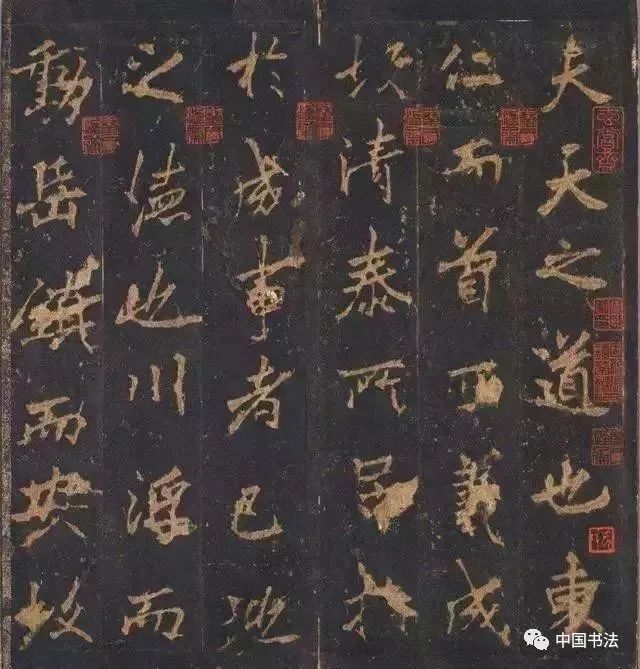 夫天之道也東
仁而首西義成
故清泰所居指
於成事者已地
之德也川浮而
動岳鎮而安故
中国书法